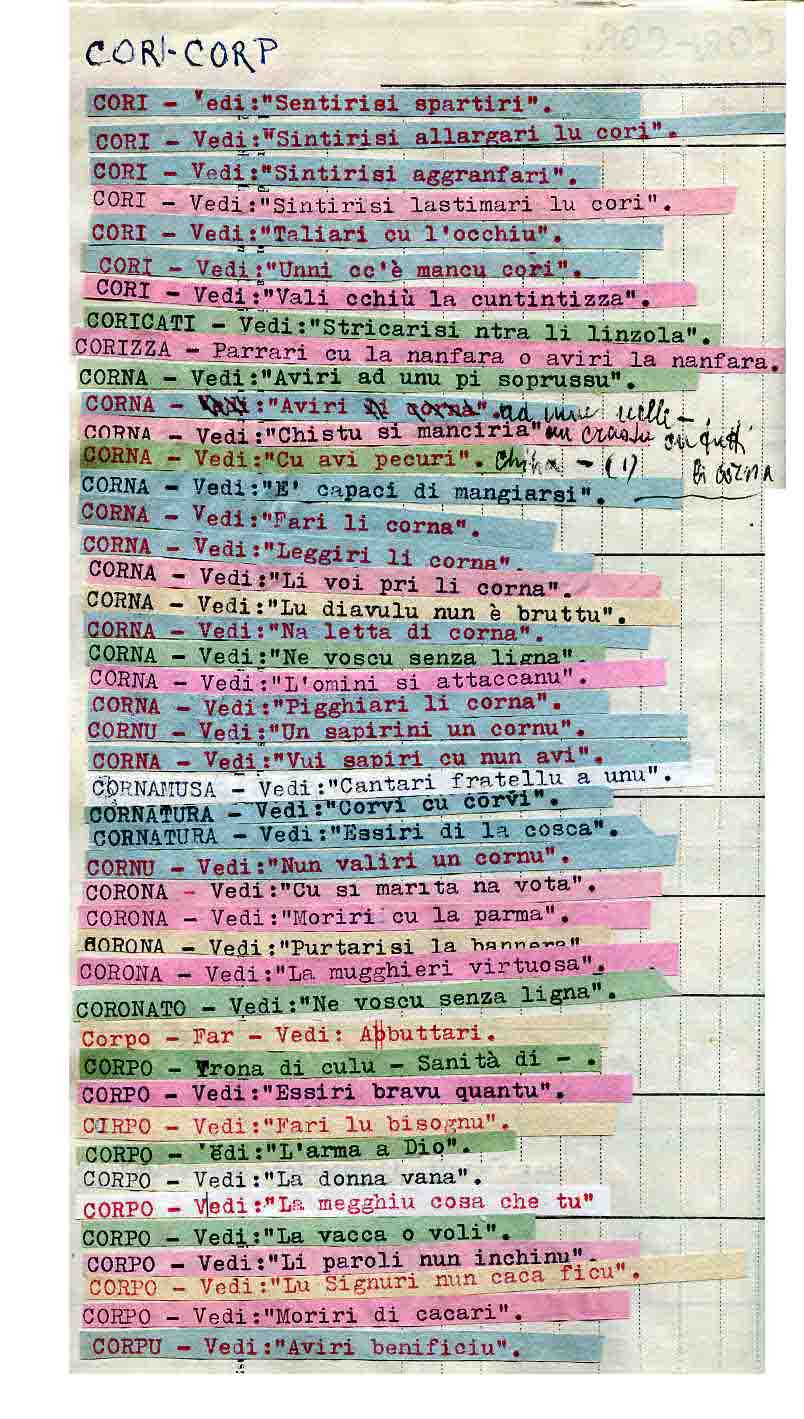 CORI-CORP
CORI - Vedi:"Sentirisi spartiri".
CORI - Vedi:"Sintirisi allargari lu cori".
CORI - Vedi:"Sintirisi aggranfari".
CORI - Vedi:"Sintirisi lastimari lu cori".
CORI - Vedi:"Taliari cu l'occhiu".
CORI - Vedi:"Unni cc'è mancu cori".
CORI - Vedi:"Vali cchiù la cuntintizza".
CORICATI - Vedi:"Stricarisi ntra li linzola".
CORIZZA - Parrari cu la nanfara o aviri la nanfara.
CORNA - Vedi:"Aviri ad unu pi soprussu".
CORNA - :"Aviri ad unu
CORNA - Vedi:"Chistu si manciria" un crastu cu tutti li corna
CORNA - Vedi:"Cu avi pecuri". - (1)
CORNA - Vedi:"E' capaci di mangiarsi".
CORNA - Vedi:"Fari li corna".
CORNA - Vedi:"Leggiri li corna".
CORNA - Vedi:"Li voi pri li corna".
CORNA - Vedi:"Lu diavulu nun è bruttu".
CORNA - Vedi:"Na letta di corna".
CORNA - Vedi:"Ne voscu senza ligna".
CORNA - Vedi:"L'omini si attaccanu".
CORNA - Vedi:"Pigghiari li corna".
CORNU - Vedi:"Un sapirini un cornu".
CORNA - Vedi:"Vui sapiri cu nun avi".
CORNAMUSA - Vedi:"Cantari fratellu a unu".
CORNATURA - Vedi:"Corvi cu corvi".
CORNATURA - Vedi:"Essiri di la cosca".
CORNU - Vedi:"Nun valiri un cornu".
CORONA - Vedi:"Cu si marita na vota".
CORONA - Vedi:"Moriri cu la parma".
CORONA - Vedi:"Purtarisi la bannera"
CORONA - Vedi:"La mugghieri virtuosa".
CORONATO - Vedi:"Ne voscu senza ligna".
Corpo - Far - Vedi: Abbuttari.
CORPO - Trona di culu - Sanità di - .
CORPO - Vedi:"Essiri bravu quantu".
CIRPO - Vedi:"Fari lu bisognu".
CORPO - Vedi:"L'arma a Dio".
CORPO - Vedi:"La donna vana".
CORPO - Vedi:"La megghiu cosa che tu"
CORPO - Vedi:"La vacca o voli".
CORPO - Vedi:"Li paroli nun inchinu".
CORPO - Vedi:"Lu Signuri nun caca ficu".
CORPO - Vedi:"Moriri di cacari".
CORPU - Vedi:"Aviri benificiu".